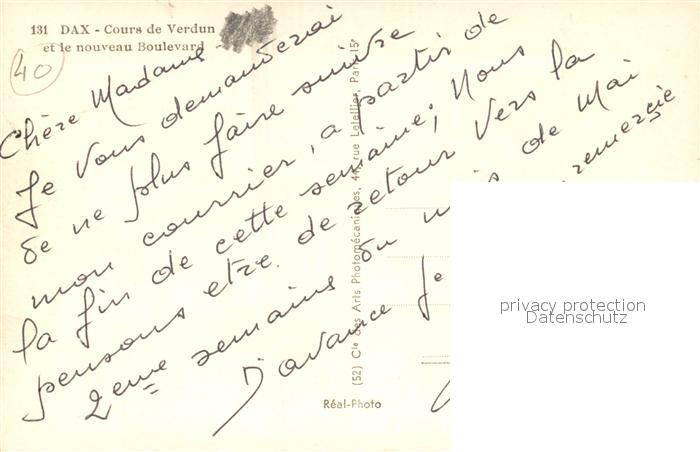 131 DAX - Cours de Verdun
et le nouveau Boulevard -
40
Chère Madame
Je vous demanderai
de ne plus faire suivre
mon courrier, a partir de
la fin de cette semaine; Nous
pensons etre de retour vers la
2eme semaine du mois de Mai
D'avance Je remercie
(52) Cie des Arts Photomécaniques, 44, rue Letellier, Paris-15e
Réal-Photo
privacy protection
Datenschutz